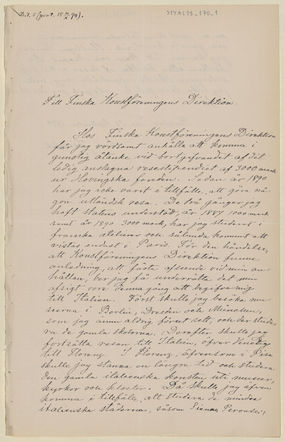 Till Finska Konstföreningens Direktion.
Hos Finska Konstföreningens Direktion
får jag vördsamt anhålla att komma i
gunstig åtanke vid bortgifvandet af det
ledig anslagna resestipendiet af 3000 mark
ur Hovingska fonden. Sedan år 1890
har jag icke varit i tillfälle, att göra nå-
gon utländsk resa. De två gånger jag
haft Statens understöd, år 1887 1000 mark
samt år 1890 3000 mark, har jag studerat i
franska ateliers och sålunda kommit att
vistas endast i Paris. För den händelse,
att Konstföreningens Direktion funne
anledning, att fästa afseende vid min an-
hållan, har jag för
afsigt denna gång att begifva mig
till Italien. Först skulle jag besöka mu-
seerna i Berlin, Dresden och München,
som jag ännu aldrig förut sett, och der stude-
ra de gamla skolorna. Derefter skulle jag
fortsätta resan till Italien, öfver Venedig
till Florens. I Florens, äfvensom i Pisa
skulle jag stanna en längre tid och studera
den gamla italienska konsten i museer,
kyrkor och kloster. Då skulle jag äfven
komma i tillfälle, att studera de mindre
italienska städerna, såsom Siena, Perugia,